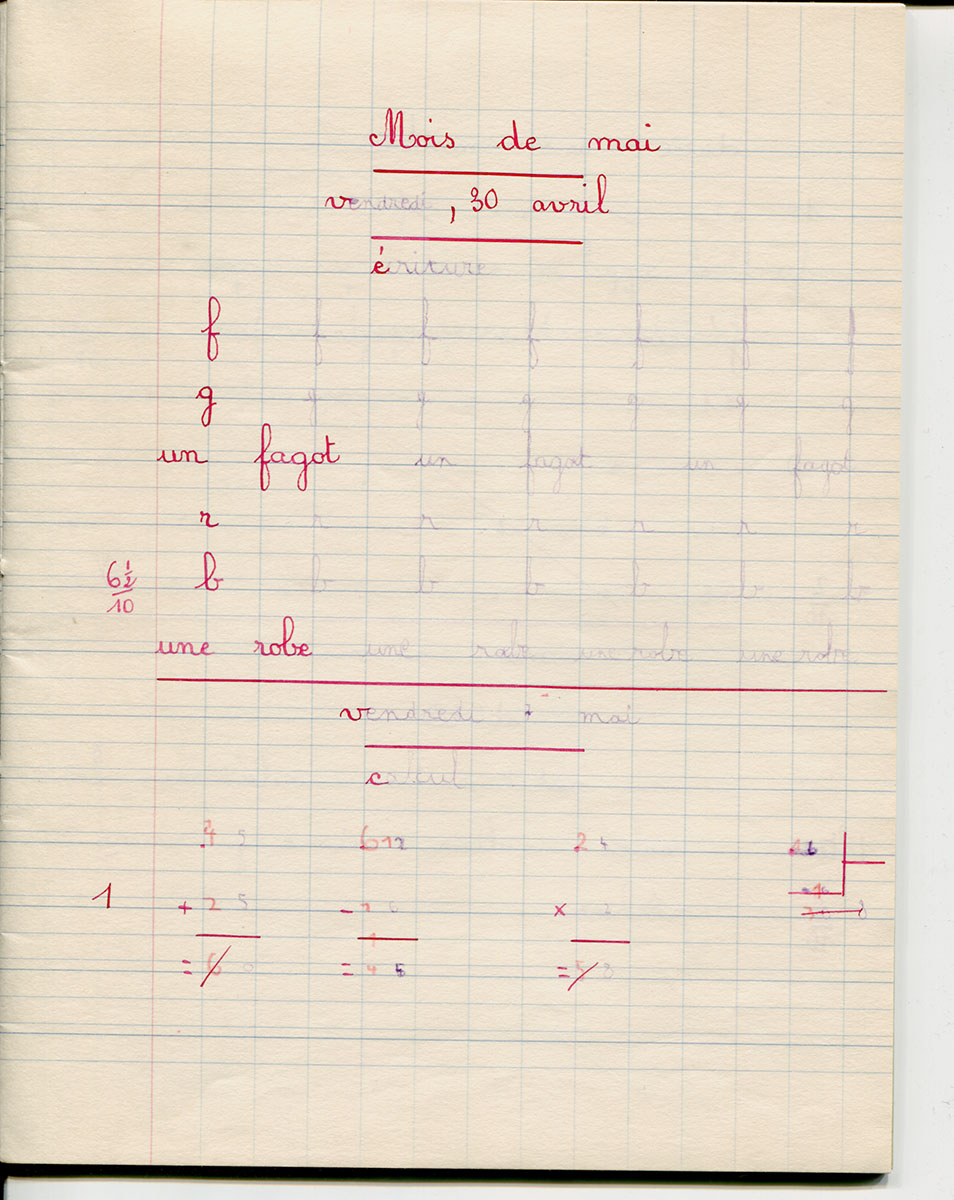 Mois de mai
vendredi, 30 avril
écriture
f f f f f f f
g g g g g g g
un fagot un fagot un fagot
r r r r r r r
6½/10 b b b b b b b
une robe une robe une robe une robe
vendredi 7 mai
calcul
5 612 24
1 + 25 - ×
= = 45 =